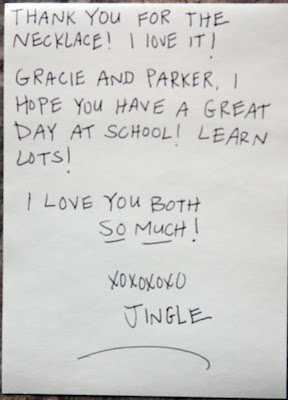 THANK YOU FOR THE
NECKLACE! I LOVE IT!
GRACIE AND PARKER, I
HOPE YOU HAVE A GREAT
DAY AT SCHOOL! LEARN
LOTS!
I LOVE YOU BOTH
SO MUCH!
XOXOXOXO
JINGLE